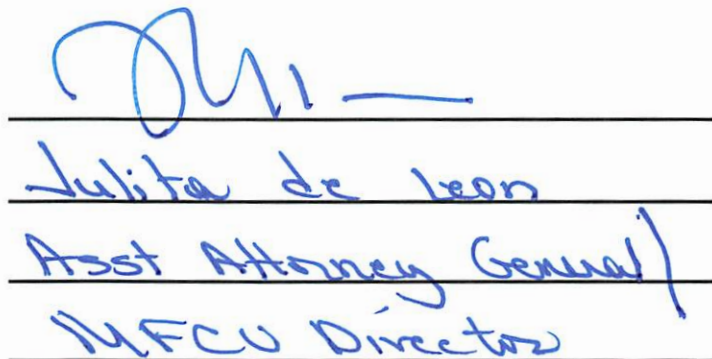 Julita de Leon
Asst Attorney General/
MFCU Director